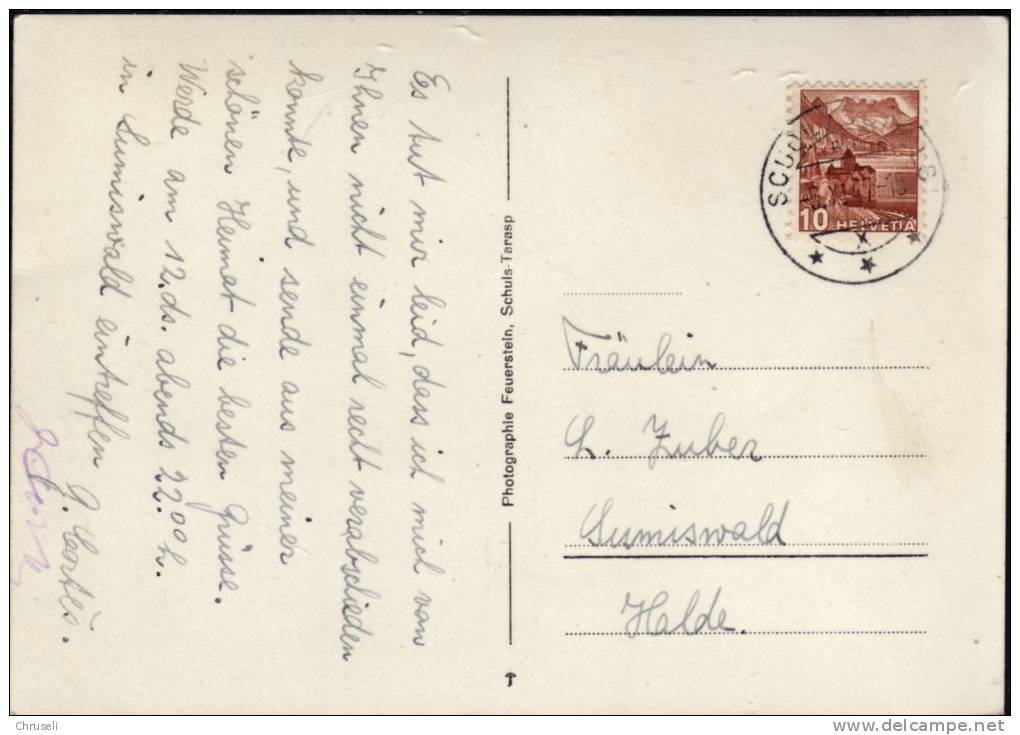 Es tut mir leid, dass ich mich von
Ihnen nicht einmal recht verabschieden
konnte, und sende aus meiner
schönen Heimat die besten Grüsse.
Werde am 12. ds. abends 22.00 h.
in Sumiswald eintreffen
Photographie Feuerstein, Schuls-Tarasp
SCUOL
10 HELVETIA
Fräulein
L. Zuber
Sumiswald
Halde.
Chruseli
http://www.delcampe.net